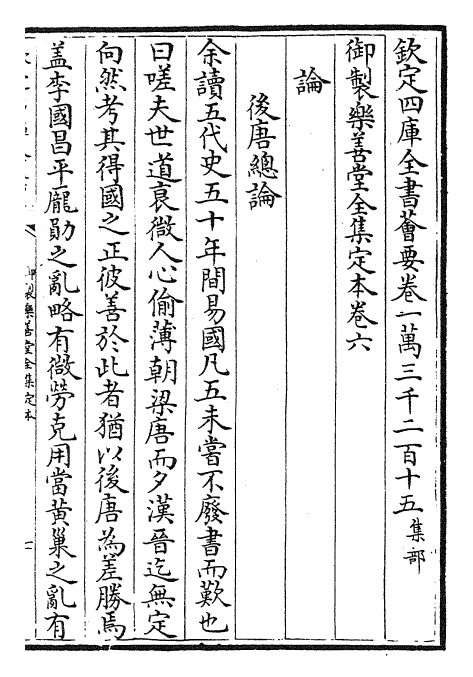 欽定四庫全書薈要卷一萬三千二百十五集部
御製樂善堂全集定本卷六
論
後唐總論
余讀五代史五十年間易國凡五未嘗不廢書而歎也
曰嗟夫世道衰微人心偷薄朝梁唐而夕漢晉迄無定
向然考其得國之正彼善於此者猶以後唐為差勝焉
盖李國昌平龎勛之亂略有微勞克用當黃巢之亂有
御製樂善堂全集定本